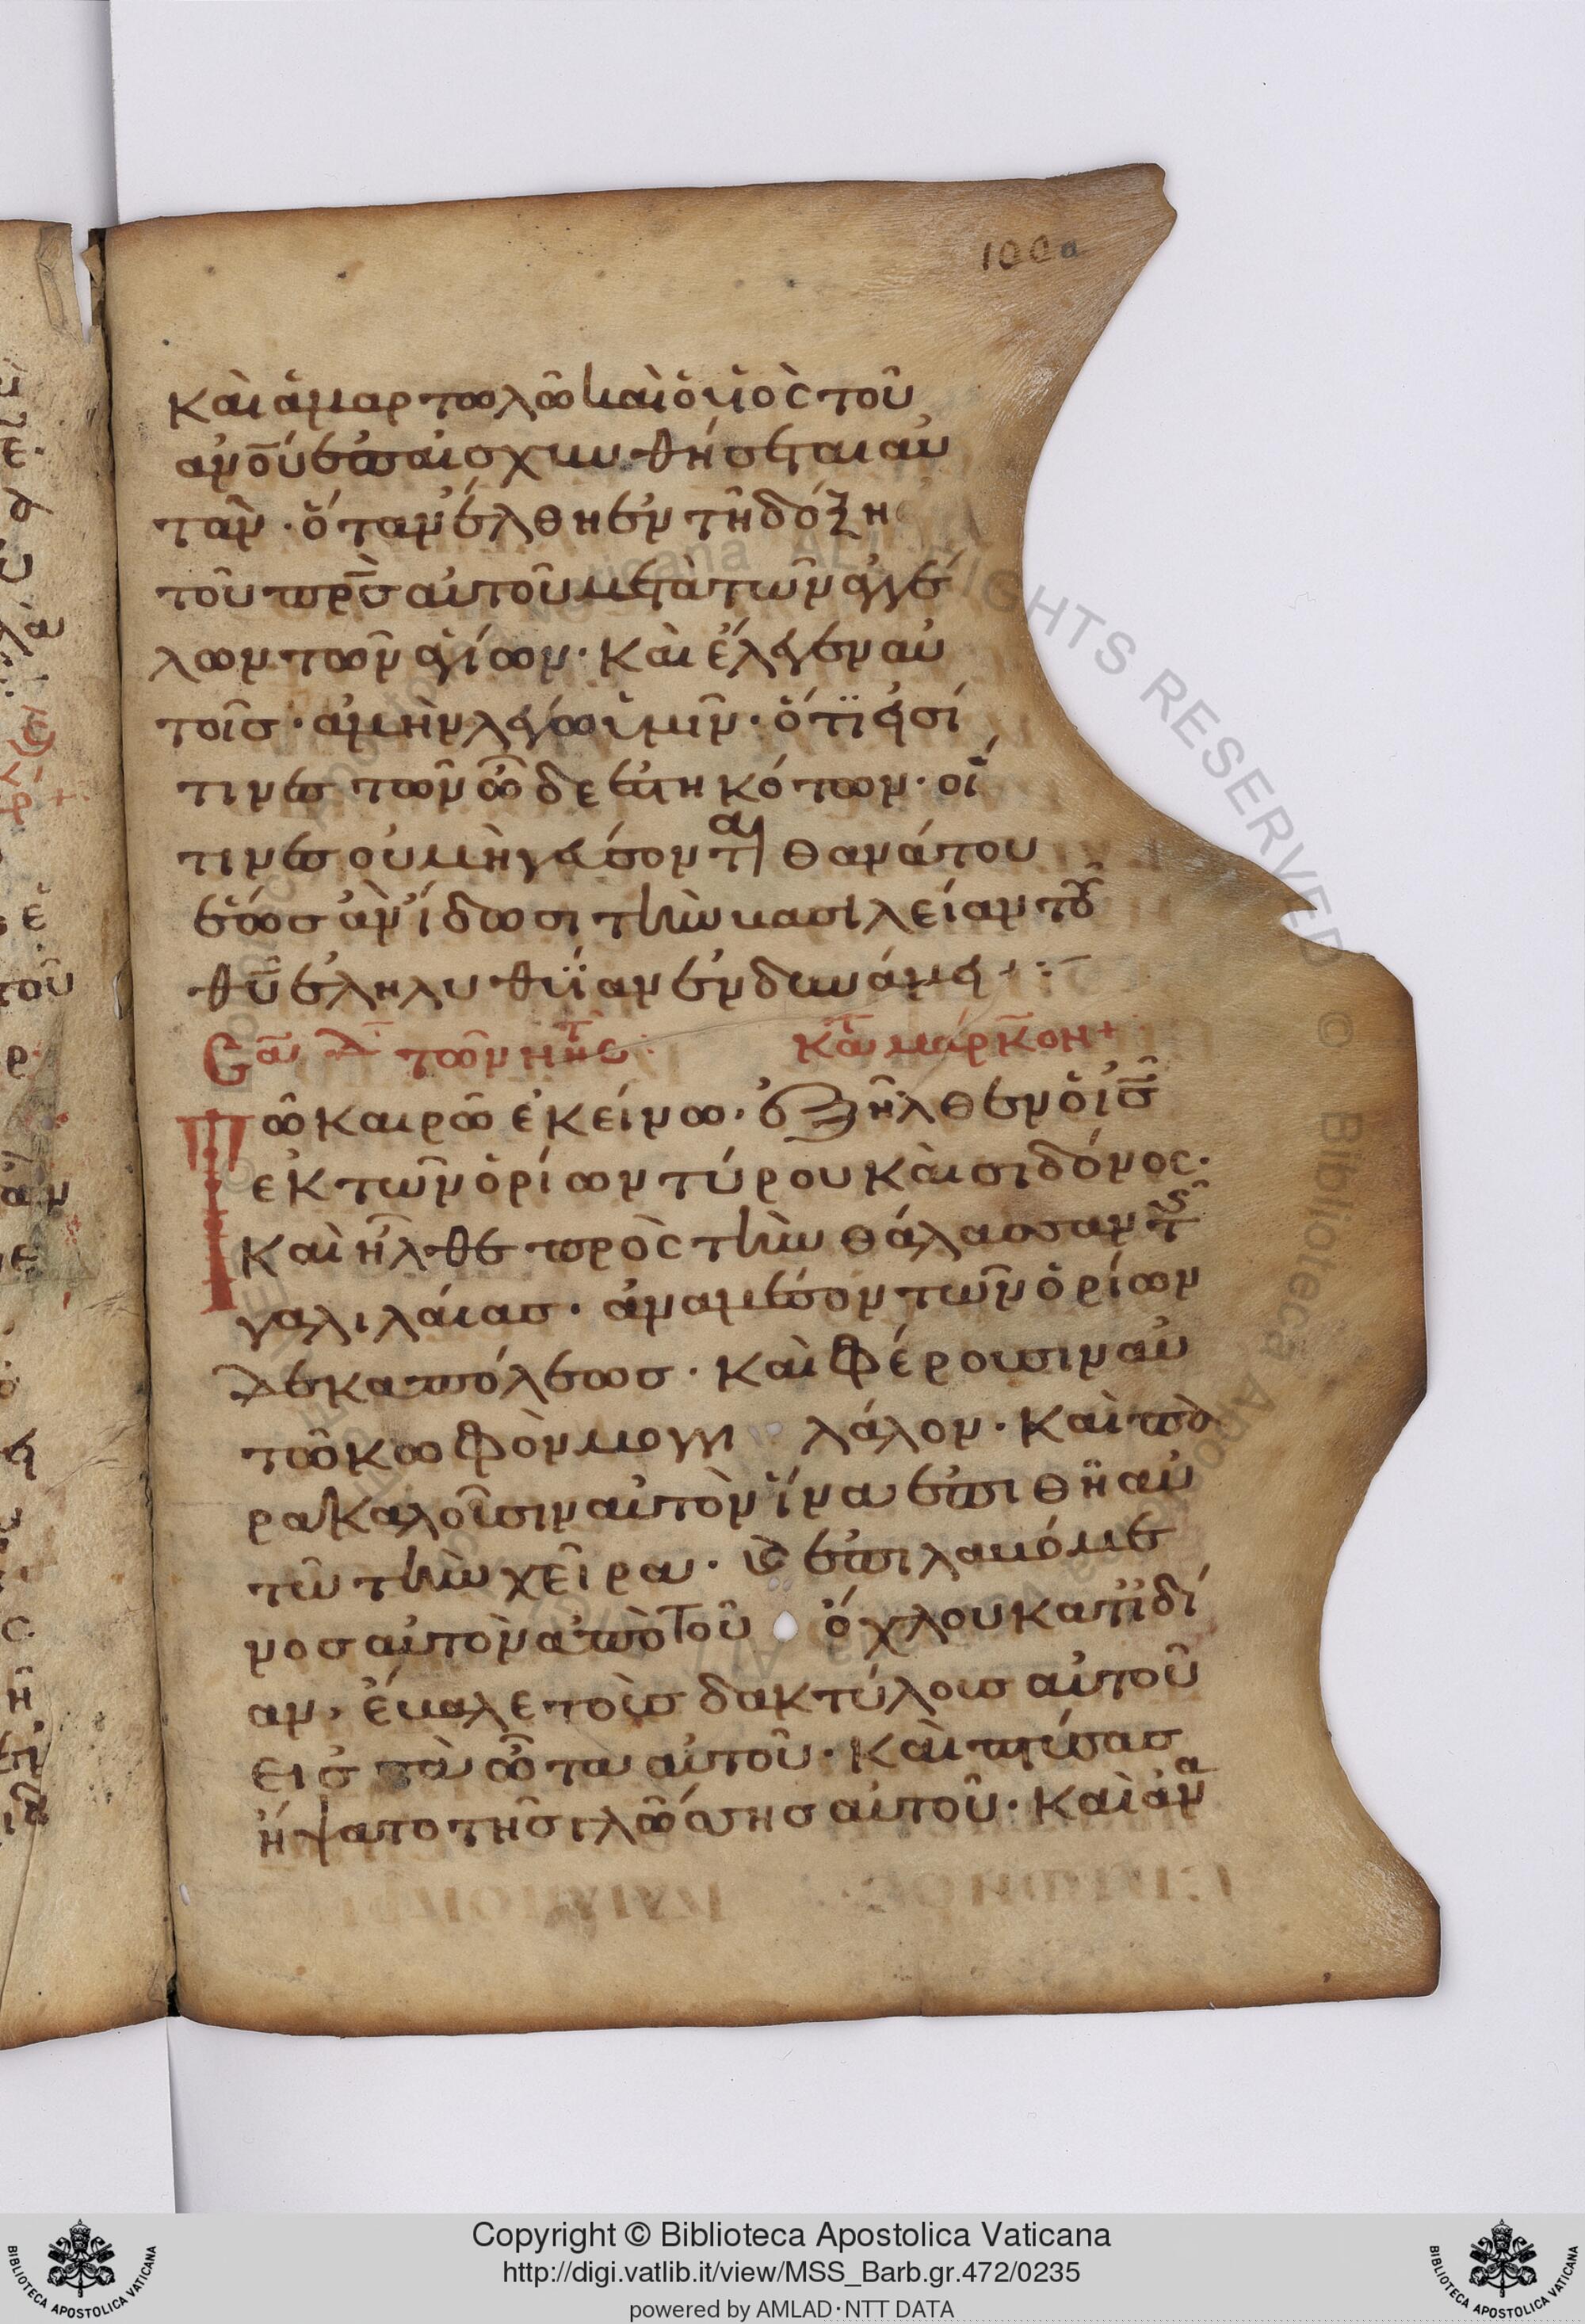 100a
καὶ ἁμαρτωλῶ καὶ ὁ υἱὸς τοῦ
ἀνο̅υ ἐπαισχυνθήσεται αὐ
τὸν · ὅταν ἔλθη ἐν τῆ δόξη
τοῦ πρ̅ς αὐτοῦ μετὰ τῶν ἀγγέ
λων τῶν ἁγίων · καὶ ἔλεγεν αὐ
τοῖς · ἀμὴν λέγω ὑμῖν · ὅτι εἰσί
τινες τῶν ὧδε ἑστηκότων · οἵ
τινες οὐ μὴ γεύσονται θανάτου
ἕως ἂν ἴδωσι τὴν βασιλείαν τοῦ
θ̅υ ἐληλυθυῖαν ἐν δυνάμει ·:
κατ μάρκον +
Τῶ καιρῶ ἐκείνω · ἐξῆλθεν ὁ ἰ̅ς
ἐκ τῶν ὁρίων τύρου καὶ σιδόνος ·
καὶ ἦλθε πρὸς τὴν θάλασσαν τῆς
γαλιλαίας · ἀναμέσον τῶν ὁρίων
δεκαπόλεως · καὶ φέρουσιν αὐ
τῶ κωφὸν μογγιλάλον · καὶ πα
ρακαλοῦσιν αὐτὸν ἵνα ἐπιθῆ αὐ
τῶ τὴν χεῖρα · καὶ ἐπιλαβόμε
νος αὐτὸν ἀπὸ τοῦ ὄχλου κατϊδί
αν · ἔβαλε τοὺς δακτύλους αὐτοῦ
εἰς τὰ ὦτα αὐτοῦ · καὶ πτύσας
ἥψατο τῆς γλώσσης αὐτοῦ · καὶ ἀνα
Copyright © Biblioteca Apostolica Vaticana
http://digi.vatlib.it/view/MSS_Barb.gr.472/0235
powered by AMLAD·NTT DATA
BIBLIOTECA APOSTOLICA VATICANA
BIBLIOTECA APOSTOLICA VATICANA